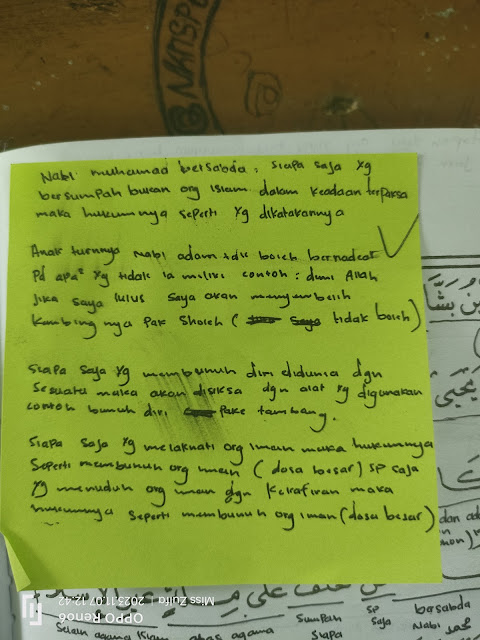 @NKTNSPO
Nabi muhamad bersabda : siapa saja yg
bersumpah bukan org islam dalam keadaan terpaksa
maka hukumnya seperti yg dikatakannya
Anak turunnya Nabi adam tdk boleh bernadzar
Pd apa² yg tidak ia miliki contoh : demi Allah
Jika saya lulus saya akan menyembelih
kambing nya Pak Sholeh ( tidak boleh )
Siapa saja yg membunuh diri didunia dgn
Sesuatu maka akan disiksa dgn alat yg digunakan
contoh bunuh diri pake tambang.
Siapa saja yg melaknati org iman maka hukumnya
Seperti membunuh org iman ( dosa besar ) sp saja
yg menuduh org iman dgn kekafiran maka
hukumnya seperti membunuh org iman (dosa besar)
dan ada
sumpah sp bersabda
Selain agama Islam atas agama Siapa Saja Nabi محمد
Miss Zulfa 2023.11.07 12:42
OPPO Reno6